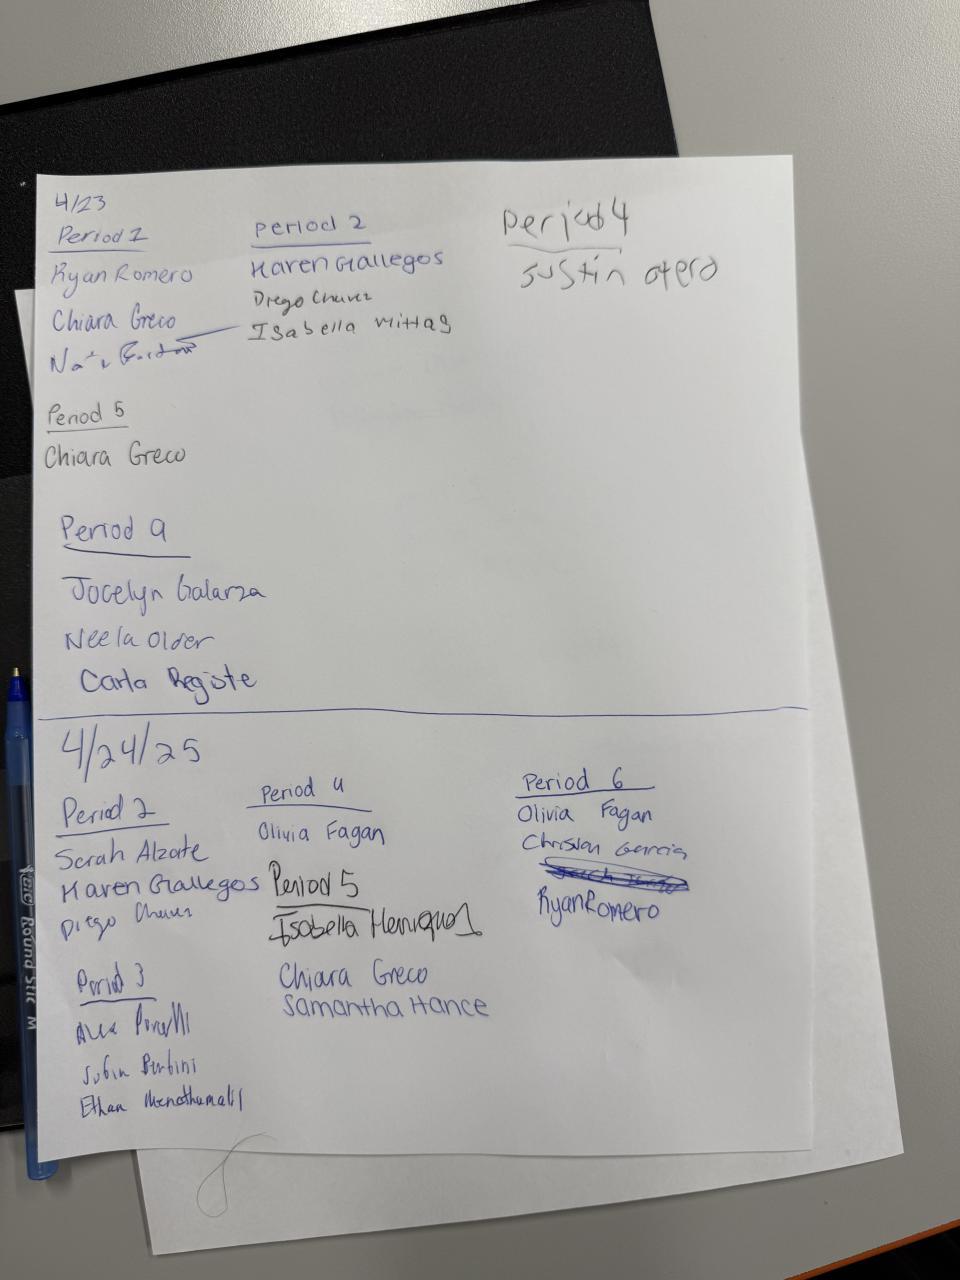 4/23
Period 1
Ryan Romero
Chiara Greco
Period 2
Karen Gallegos
Diego Chavez
Isabella Mittag
Period 4
Justin otero
Period 5
Chiara Greco
Period 9
Jocelyn Galarza
Neela Older
Carla Registe
4/24/25
Period 2
Sarah Alzate
Karen Gallegos
Diego Chavez
Period 3
Alex
Ethan
Period 4
Olivia Fagan
Period 5
Isabella Henriquez
Chiara Greco
Samantha Hance
Period 6
Olivia Fagan
Christian Garcia
Ryan Romero
BIC Round Stic M